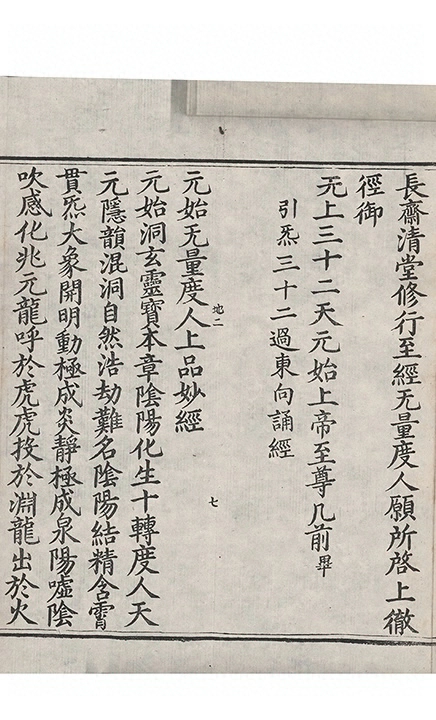 長齋清堂修行至經无量度人願所啓上徹
徑御
无上三十二天元始上帝至尊几前畢
引炁三十二過東向誦經
地二
七
元始无量度人上品妙經
元始洞玄靈寶本章陰陽化生十轉度人天
元隱韻混洞自然浩劫難名陰陽結精含霄
貫炁大象開明動極成炎靜極成泉陽噓陰
吹感化兆元龍呼於虎虎投於淵龍出於火